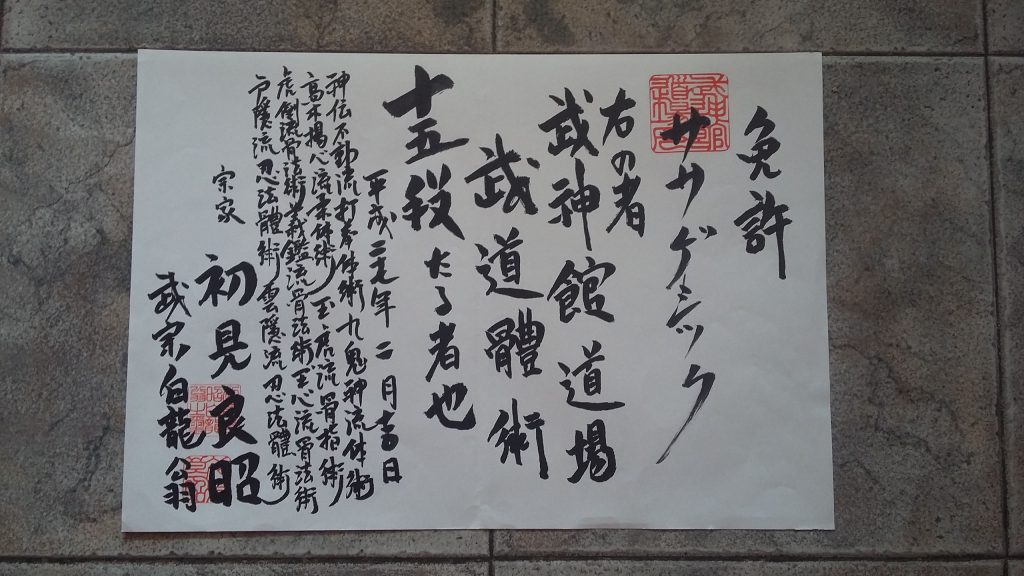 免許
右の者
武神館道場
武道體術
十五段たる者也
平成二九年二月吉日
神伝不動流打拳体術九鬼神流体術
高木揚心流柔体術 玉虎流骨指術
虎倒流骨法術 義鑑流骨法術 玉心流骨法術
戸隠流忍法體術 雲隠流忍法體術
宗家 初見良昭
武宗白龍翁